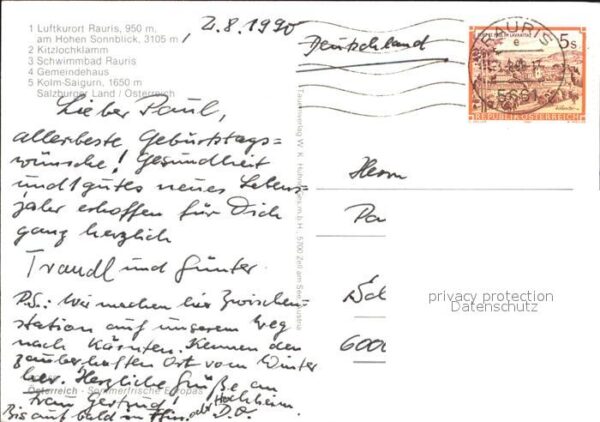 1 Luftkurort Rauris, 950 m,
am Hohen Sonnblick, 3105 m
2 Kitzlochklamm
3 Schwimmbad Rauris
4 Gemeindehaus
5 Kolm-Saigurn, 1650 m
Salzburger Land / Österreich
2.8.1990
Deutschland
RAURIS
5661
5 S
REPUBLIK ÖSTERREICH
Lieber Paul,
allerbeste Geburtstags-
wünsche! Gesundheit
und 1 gutes neues Lebens-
jahr erhoffen für Dich
ganz herzlich
Traudl und Günter
P.S.: Wir machen hier Zwischen-
station auf unserem Weg
nach Kärnten. Kennen den
zauberhaften Ort vom Winter
her. Herzliche Grüße an
Frau Gertrud!
Bis auf bald in Hochheim.
D.O.
Österreich - Sommerfrische Europas
5700 Zell am See, Austria
Herrn
Pa
privacy protection
Datenschutz